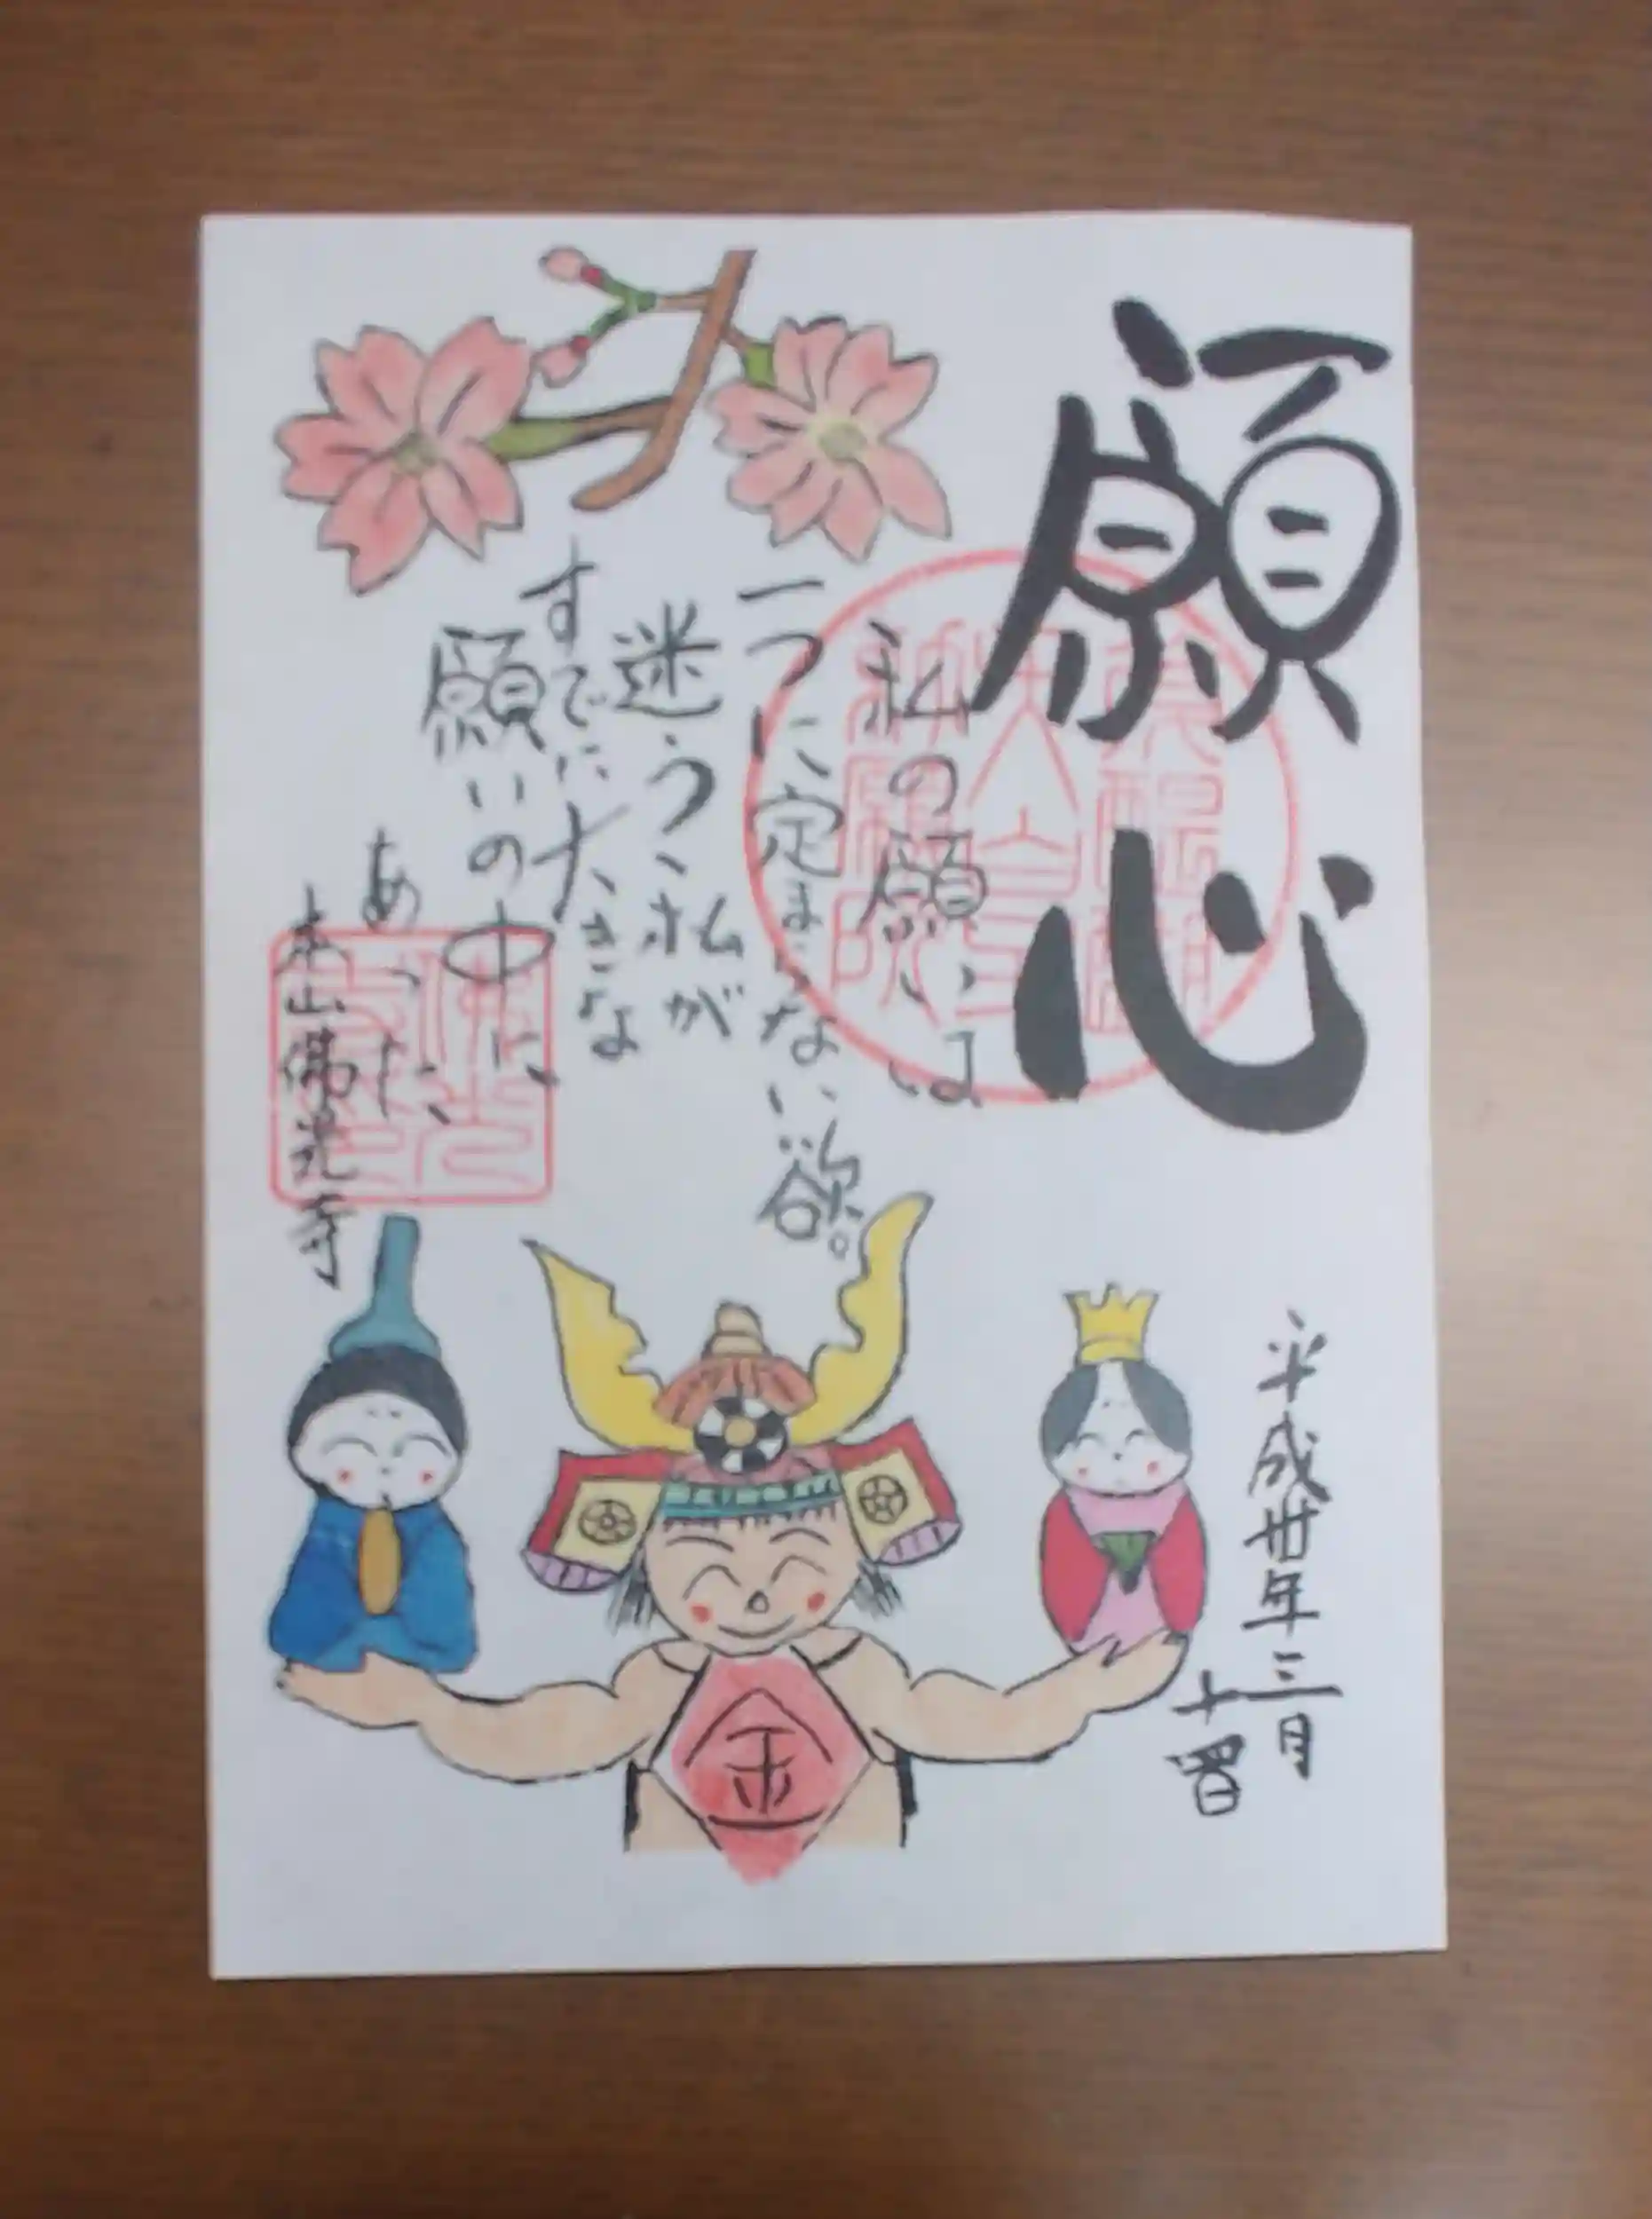 願心
私の願いは
一つに定まらない欲。
迷う、私が
すでに大きな
願いの中に
あった、
本山佛光寺
平成卅年三月
金